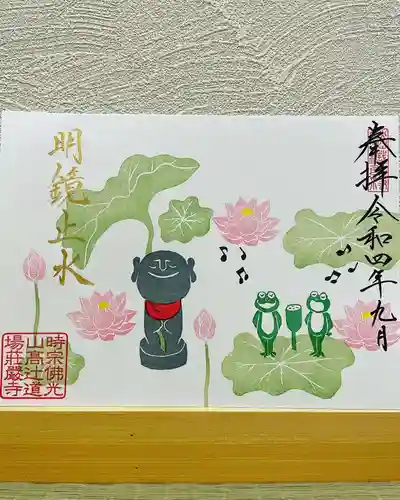 奉拝
令和四年九月
明鏡止水
時宗佛光
山高辻道
場荘厳寺